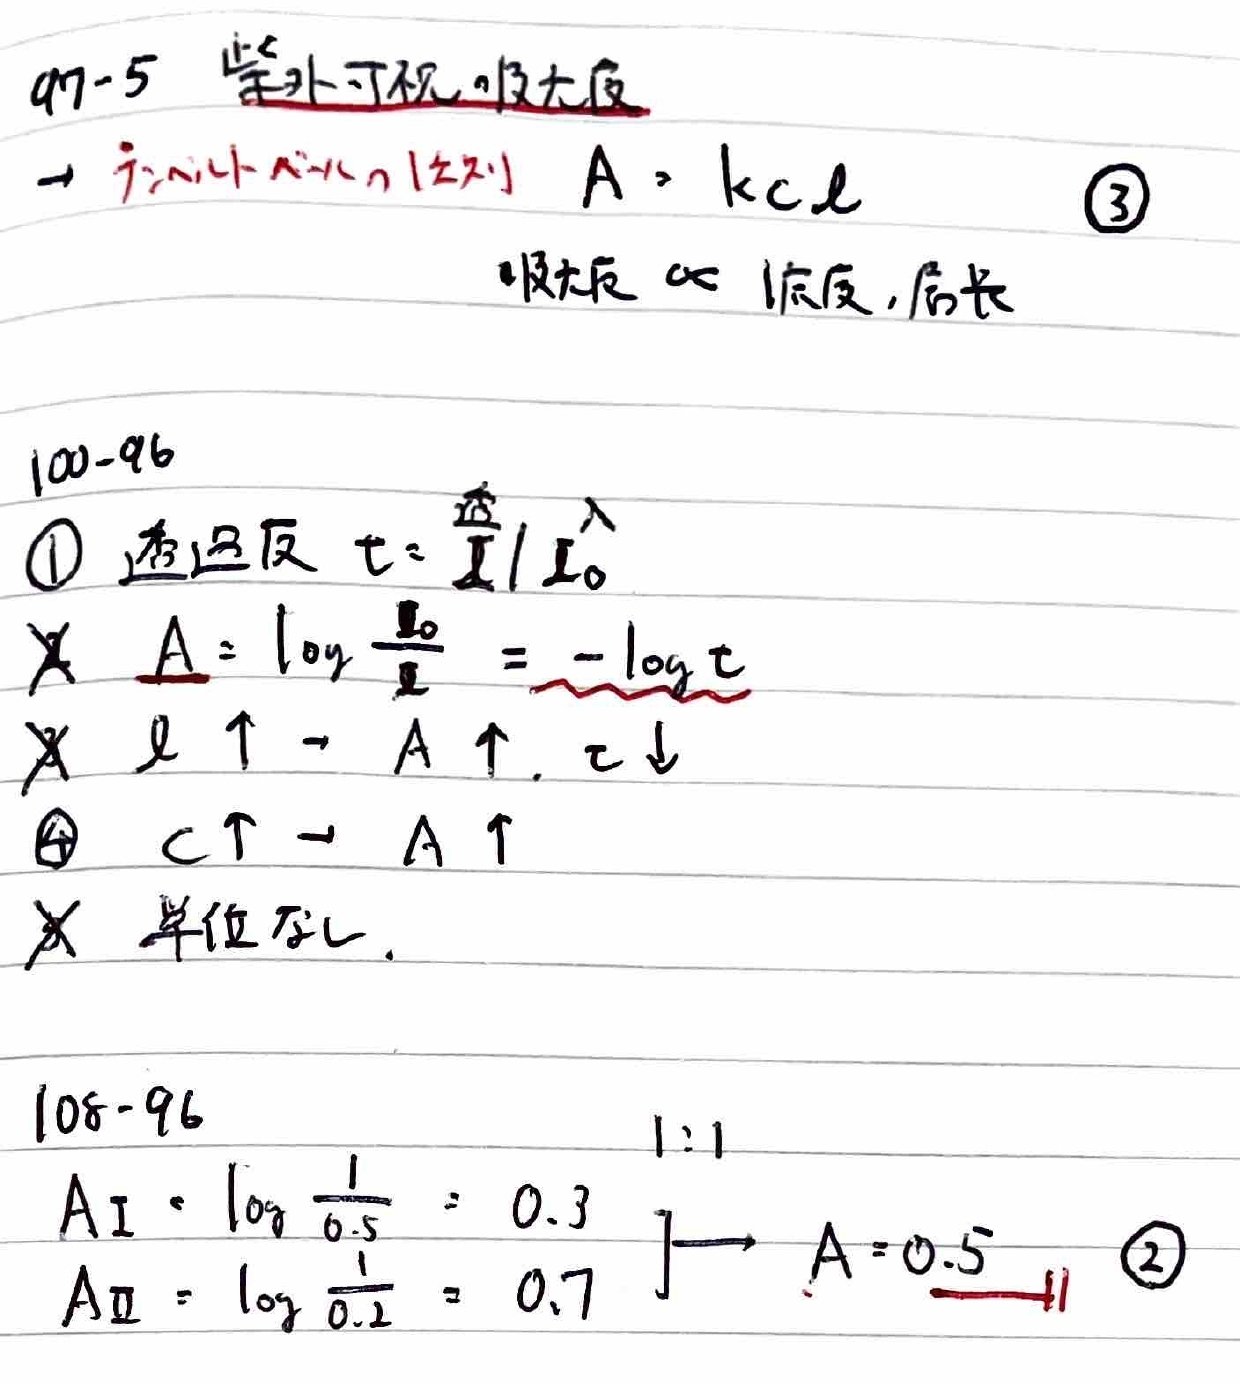 97-5 紫外可視吸光度
→ ランベルト ベールの法則 A = kcl ③
吸光度 ∝ 濃度, 層長
100-96
① 透過度 t = I / I₀ 透 入
2 A = log I₀/I = -log t
3 l ↑ → A ↑. t ↓
④ C↑ → A ↑
5 単位なし.
108-96
1:1
AⅠ = log 1/0.5 = 0.3
→ A = 0.5 ②
AⅡ = log 1/0.2 = 0.7